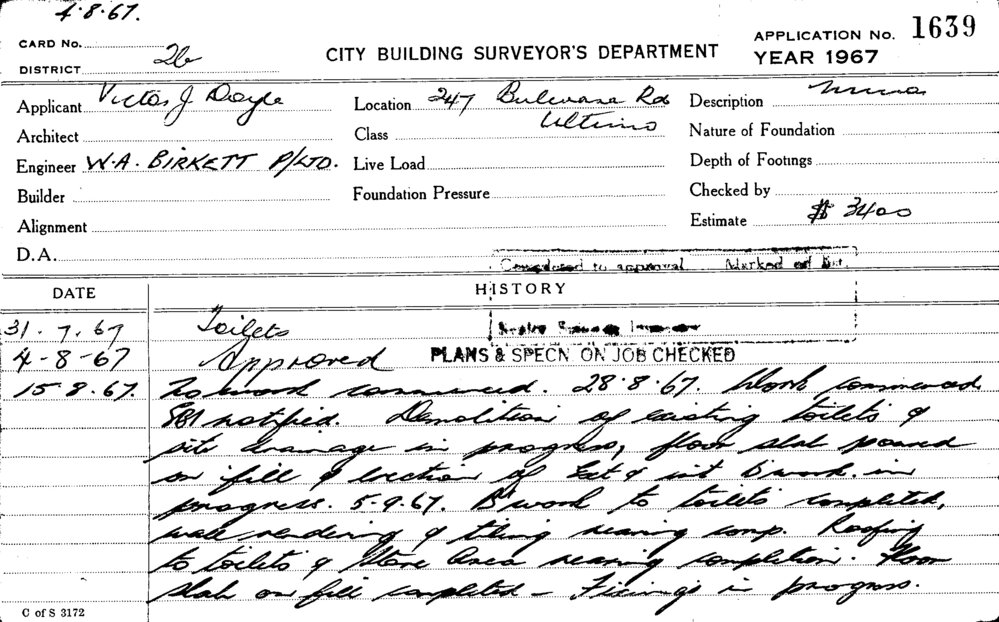 4.8.67.
CARD No.
DISTRICT 2b
CITY BUILDING SURVEYOR'S DEPARTMENT
APPLICATION No. 1639
YEAR 1967
Applicant Victor J Doyle
Architect
Engineer W.A. BIRKETT P/LTD.
Builder
Alignment
D.A.
Location 247 Bulwara Rd
Ultimo
Class
Live Load
Foundation Pressure
Description
Nature of Foundation
Depth of Footings
Checked by
Estimate $ 3400
Completed to approval Marked off
DATE
HISTORY
31.7.67 Toilets
4-8-67 Approved
PLANS & SPECN ON JOB CHECKED
15.8.67. No work commenced. 28.8.67. Work commenced
notified. Demolition of existing toilets &
site drainage in progress, floor slab poured
on fill & erection of Ext & int B'work in
progress. 5-9.67. B'work to toilets completed,
wall rendering & tiling nearing comp. Roofing
to toilets & Store Area nearing completion. Floor
slab on fill completed - Fixings in progress.
C of S 3172